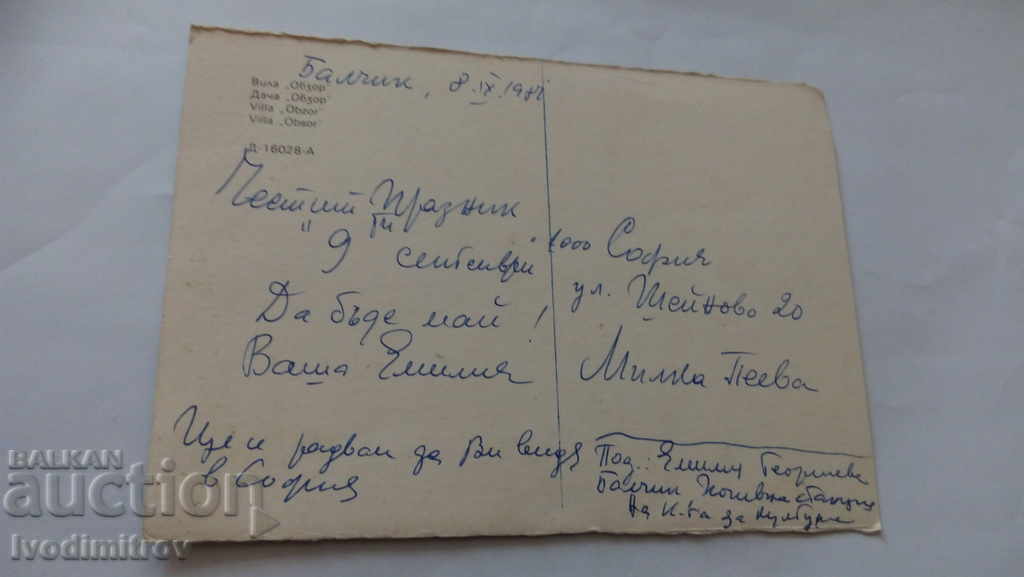 Балчик, 8.IX.198
Вила „Обзор"
Дача „Обзор"
Villa „Obzor"
Villa „Obsor"
Д-16028-А
Честит Празник
"9ти септември"
Да бъде май!
Ваша Емилия
Ще се радвам да Ви видя
в София
1000 София
ул. Шейново 20
Милка Пеева
Под.: Емилия Георгиева
Балчик Почивна станция
на К-та за култура
BALKAN
auction
Ivodimitrov